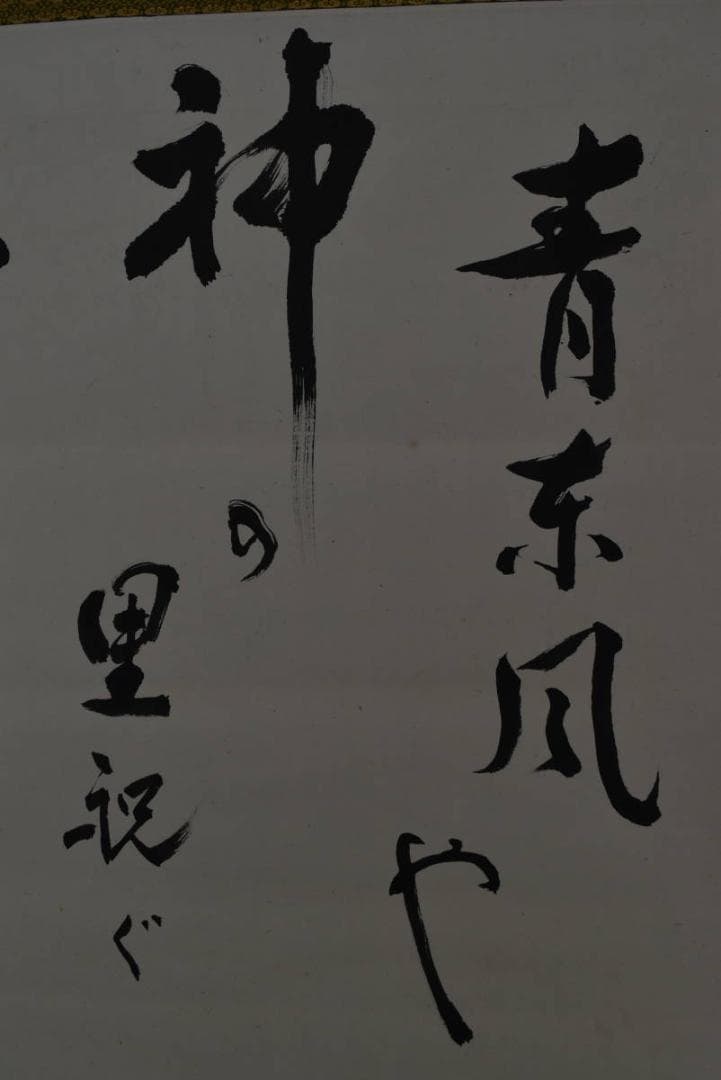 青東風や
神の
里祝ぐ